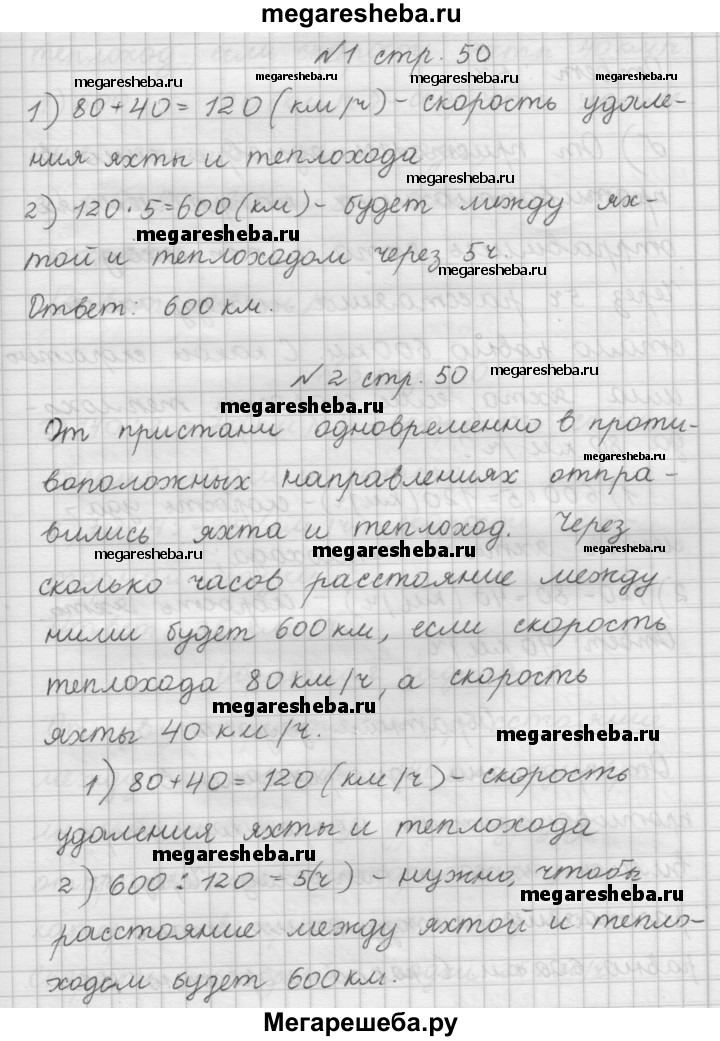 megaresheba.ru
N1 стр. 50
megaresheba.ru megaresheba.ru megaresheba.ru
1) 80+40= 120 (км/ч) - скорость удале-
ния яхты и теплохода
megaresheba.ru
2) 120·5=600 (км) - будет между ях-
megaresheba.ru
той и теплоходом через 5ч.
megaresheba.ru
Ответ: 600 км.
N2 стр. 50
megaresheba.ru
megaresheba.ru
От пристани одновременно в проти-
воположных направлениях отпра-
megaresheba.ru
вились яхта и теплоход. Через
megaresheba.ru megaresheba.ru megaresheba.ru
сколько часов расстояние между
ними будет 600 км, если скорость
теплохода 80 км/ч, а скорость
megaresheba.ru
яхты 40 км/ч.
megaresheba.ru
1) 80+40= 120 (км/ч) - скорость
удаления яхты и теплохода
megaresheba.ru
2) 600 : 120 = 5(ч) - нужно, чтобы
megaresheba.ru
расстояние между яхтой и тепло-
ходом будет 600 км.
Мегарешеба.ру